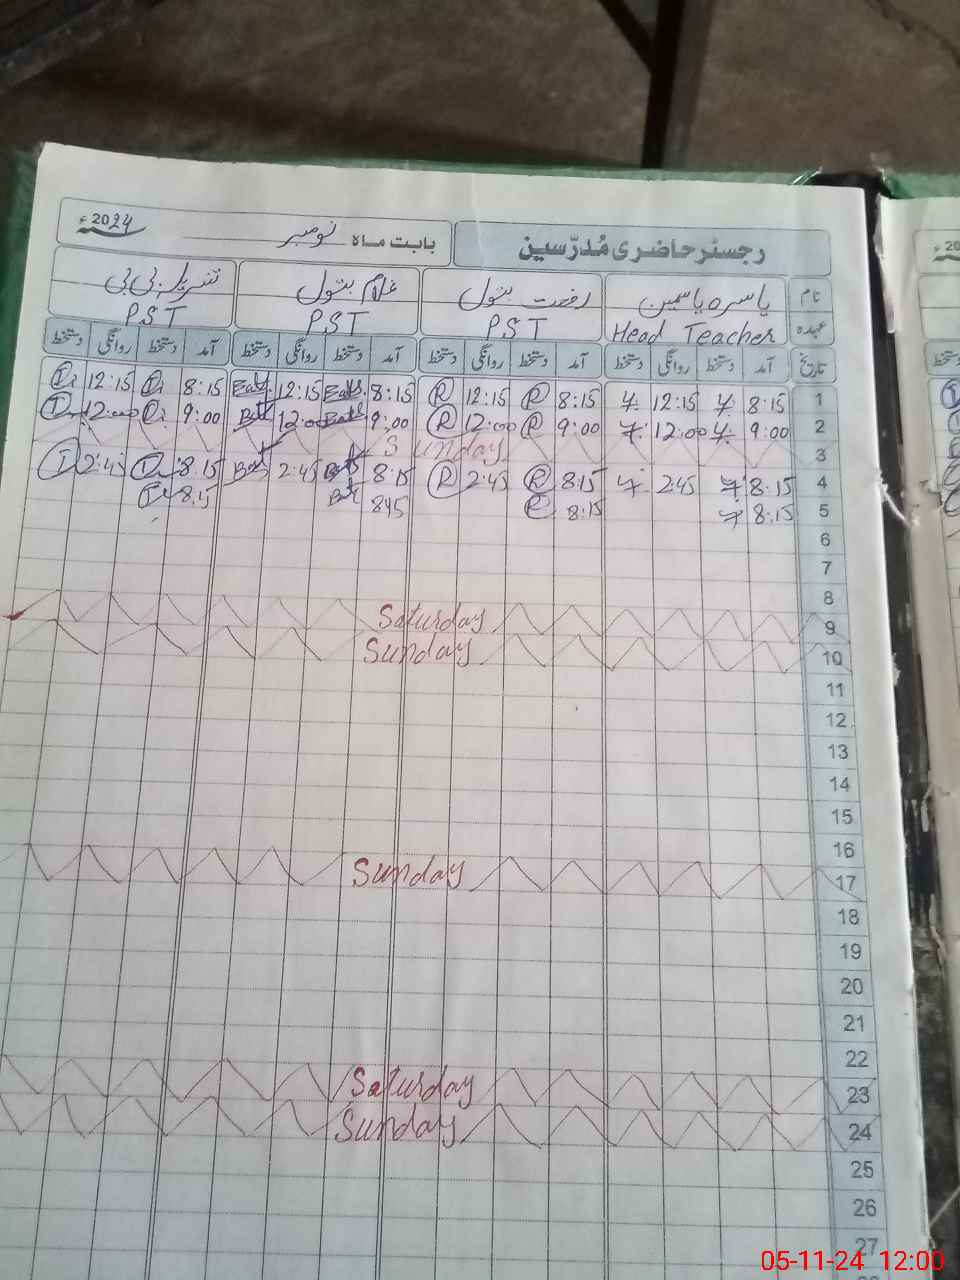 رجسٹر حاضری مُدرّسین بابت ماہ نومبر 2024ء
نام یاسرہ یاسمین رفعت بتول غلام بتول بی بی
عہدہ Head Teacher PST PST PST
تاریخ آمد دستخط روانگی دستخط آمد دستخط روانگی دستخط آمد دستخط روانگی دستخط آمد دستخط روانگی دستخط
1 8:15 12:15 8:15 R 12:15 R 8:15 12:15 8:15 12:15
2 9:00 12:00 9:00 R 12:00 R 9:00 12:00 9:00 12:00
3 Sunday
4 8:15 2:45 8:15 R 2:45 R 8:15 2:45 8:15 2:45
5 8:15 8:15 R 845 8:15
6
7
8
9 Saturday
10 Sunday
11
12
13
14
15
16
17 Sunday
18
19
20
21
22
23 Saturday
24 Sunday
25
26
27
05-11-24 12:00